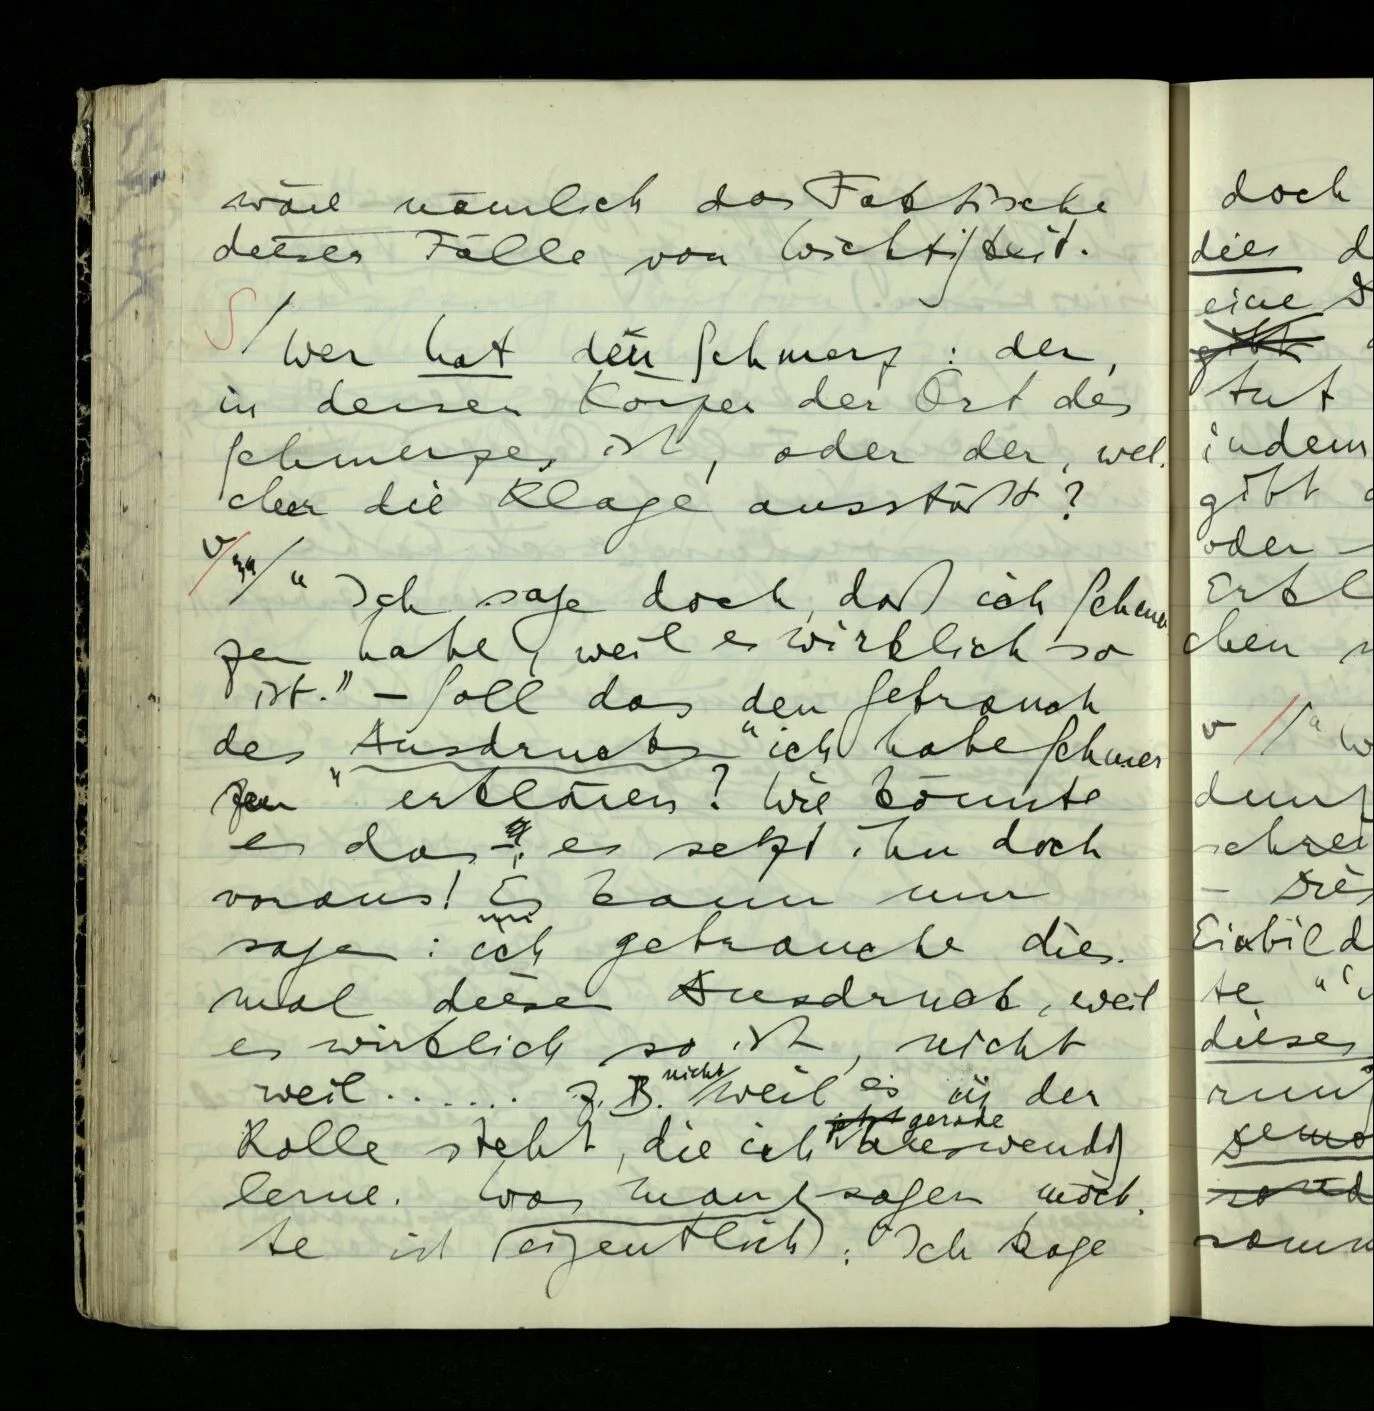 wäre nämlich das Faktische
dieser Fälle von Wichtigkeit.
S / Wer hat den Schmerz: der,
in dessen Körper der Ort des
Schmerzes ist, oder der, wel-
cher die Klage ausstößt?
"Ich sage doch, daß ich Schmer
zen habe, weil es wirklich so
ist." – Soll das den Gebrauch
des Ausdrucks "ich habe Schmer
zen" erklären? Wie könnte
es das?; es setzt ihn doch
voraus! Es kann nur
sagen: ich gebrauche dies-
mal diesen Ausdruck, weil
es wirklich so ist, nicht
weil...... z.B. nicht weil es in der
Rolle steht, die ich jetzt gerade auswendig
lerne. Was man sagen möch-
te ist (eigentlich): "Ich klage
doch
dies d
eine
gibt
tut
indem
gibt
oder –
Erkl
chen
v // "W
dung
schrei
– Die
Einbild
te "i
dieses
rung
sond
somm